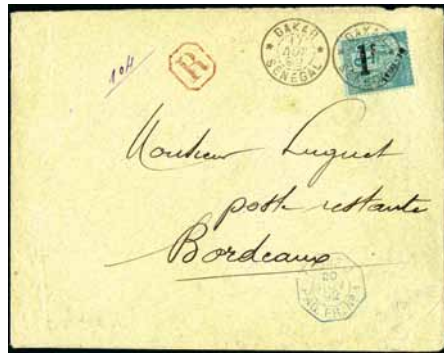 104
R
DAKAR
17
AOU
92
SÉNÉGAL
DAKAR
1F
Monsieur Luquet
poste restante
Bordeaux
20
AOUT
92